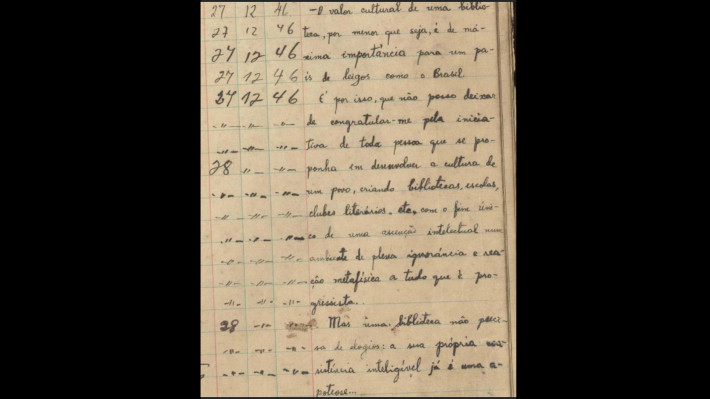 27 12 46 – O valor cultural de uma biblio-
27 12 46 teca, por menor que seja, é de má-
27 12 46 xima importância para um pa-
27 12 46 is de leigos como o Brasil.
27 12 46 É por isso, que não posso deixar
-"- -"- -"- de congratular-me pela inicia-
-"- -"- -"- tiva de toda pessoa que se pro-
28 -"- -"- ponha em desenvolver a cultura de
-"- -"- -"- um povo, criando bibliotecas, escolas,
-"- -"- -"- clubes literários, etc, com o fim úni-
-"- -"- -"- co de uma ascenção intelectual num
-"- -"- -"- ambiente de plena ignorância e rea-
-"- -"- -"- ção metafísica a tudo que é pro-
-"- -"- -"- gressista..
28 -"- -"- Mas uma biblioteca não preci-
-"- -"- -"- sa de elogios: a sua própria exi-
-"- -"- -"- stência inteligível já é uma a-
poteose...